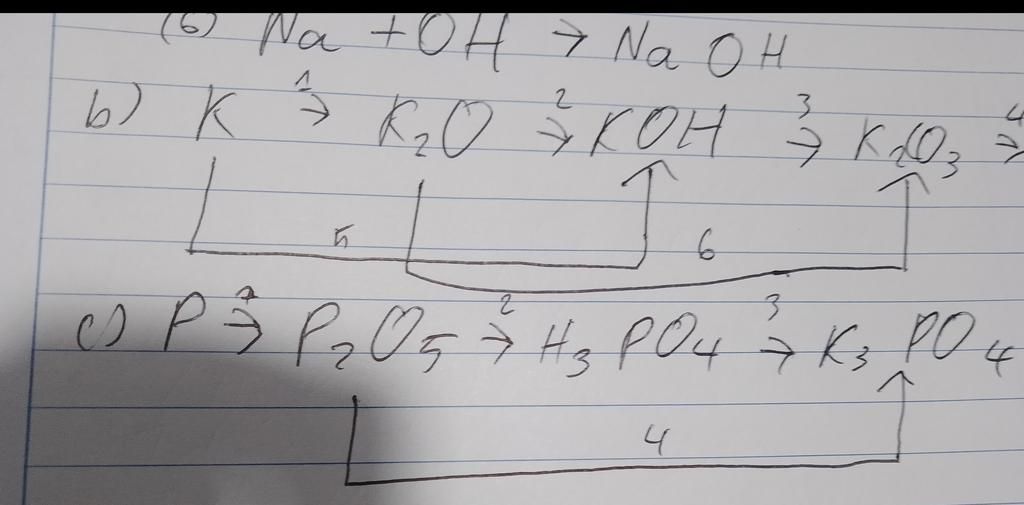 (6) Na + OH → Na OH
b) K 1→ K₂O 2→ KOH 3→ K₂CO₃ 4→
5 6
c) P 1→ P₂O₅ 2→ H₃PO₄ 3→ K₃PO₄
4